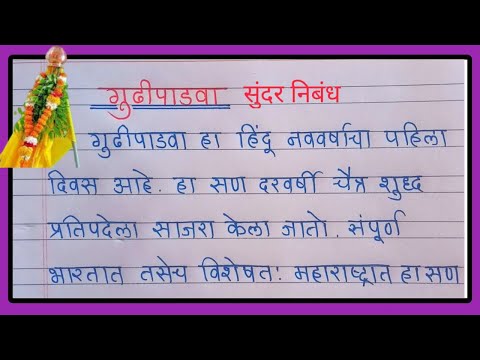 गुढीपाडवा सुंदर निबंध
गुढीपाडवा हा हिंदू नववर्षाचा पहिला
दिवस आहे. हा सण दरवर्षी चैत्र शुध्द
प्रतिपदेला साजरा केला जातो. संपूर्ण
भारतात तसेच विशेषत: महाराष्ट्रात हा सण